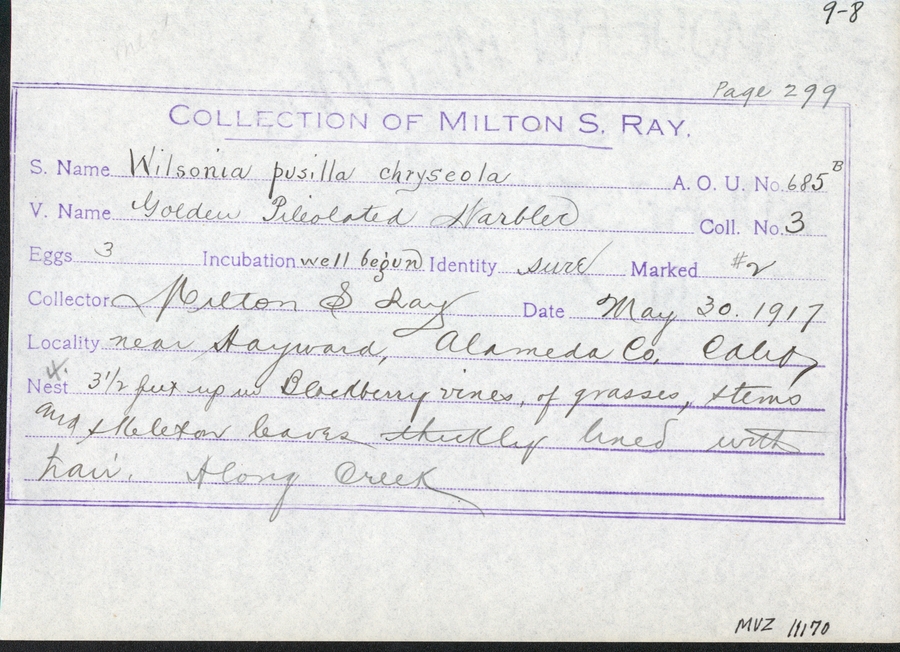 9-8
Page 299
COLLECTION OF MILTON S. RAY.
S. Name Wilsonia pusilla chryseola A. O. U. No. 685 B
V. Name Golden Pileolated Warbler Coll. No. 3
Eggs 3 Incubation well begun Identity sure Marked #2
Collector Milton S Ray Date May 30. 1917
Locality near Hayward, Alameda Co. Calif
4.
Nest 3 1/2 feet up in Blackberry vines, of grasses, stems
and skeleton leaves thickly lined with
hair. Along Creek
MVZ 11170